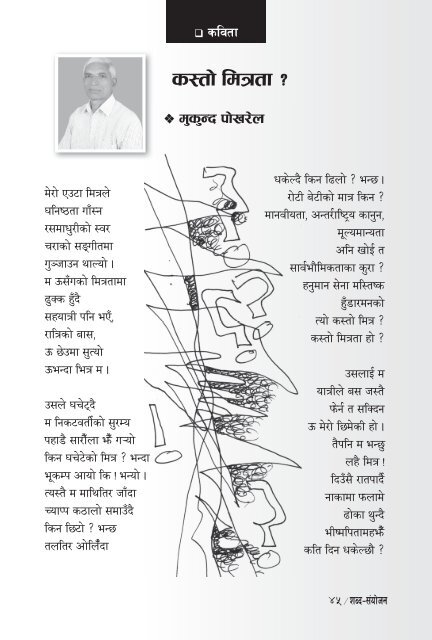 ❑ कविता
कस्तो मित्रता ?
❖ मुकुन्द पोखरेल
मेरो एउटा मित्रले
घनिष्ठता गाँस्न
रसमाधुरीको स्वर
चराको सङ्गीतमा
गुञ्जाउन थाल्यो ।
म ऊसँगको मित्रतामा
ढुक्क हुँदै
सहयात्री पनि भएँ,
रात्रिको बास,
ऊ छेउमा सुत्यो
ऊभन्दा भित्र म ।
उसले घचेट्दै
म निकटवर्तीको सुरम्य
पहाडै सारौंला झैं गर्‍यो
किन घचेटेको मित्र ? भन्दा
भूकम्प आयो कि ! भन्यो ।
त्यस्तै म माथितिर जाँदा
च्याप्प कठालो समाउँदै
किन छिटो ? भन्छ
तलतिर ओर्लिंदा
धकेल्दै किन ढिलो ? भन्छ ।
रोटी बेटीको मात्र किन ?
मानवीयता, अन्तर्राष्ट्रिय कानुन,
मूल्यमान्यता
अनि खोई त
सार्वभौमिकताका कुरा ?
हनुमान सेना मस्तिष्क
हुँडारमनको
त्यो कस्तो मित्र ?
कस्तो मित्रता हो ?
उसलाई म
यात्रीले बस जस्तै
फेर्न त सक्दिन
ऊ मेरो छिमेकी हो ।
तैपनि म भन्छु
लहै मित्र !
दिउँसै रातपार्दै
नाकामा फलामे
ढोका थुन्दै
भीष्मपितामहझैं
कति दिन धकेल्छौ ?
४५ / शब्द-संयोजन